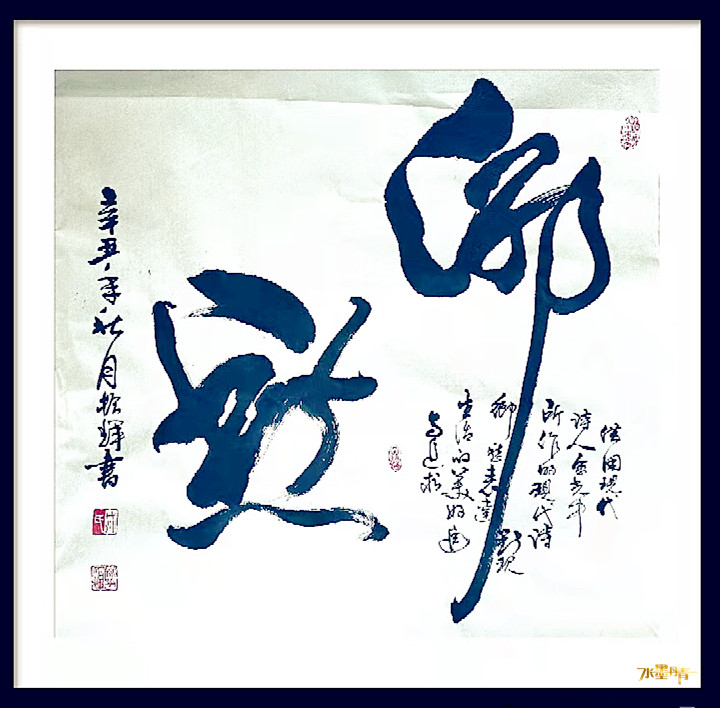 鄉
愁
借用現代
诗人余光中
所作的現代诗
鄉愁表達
生活的美好
辛丑年秋月輝書
水墨丹青